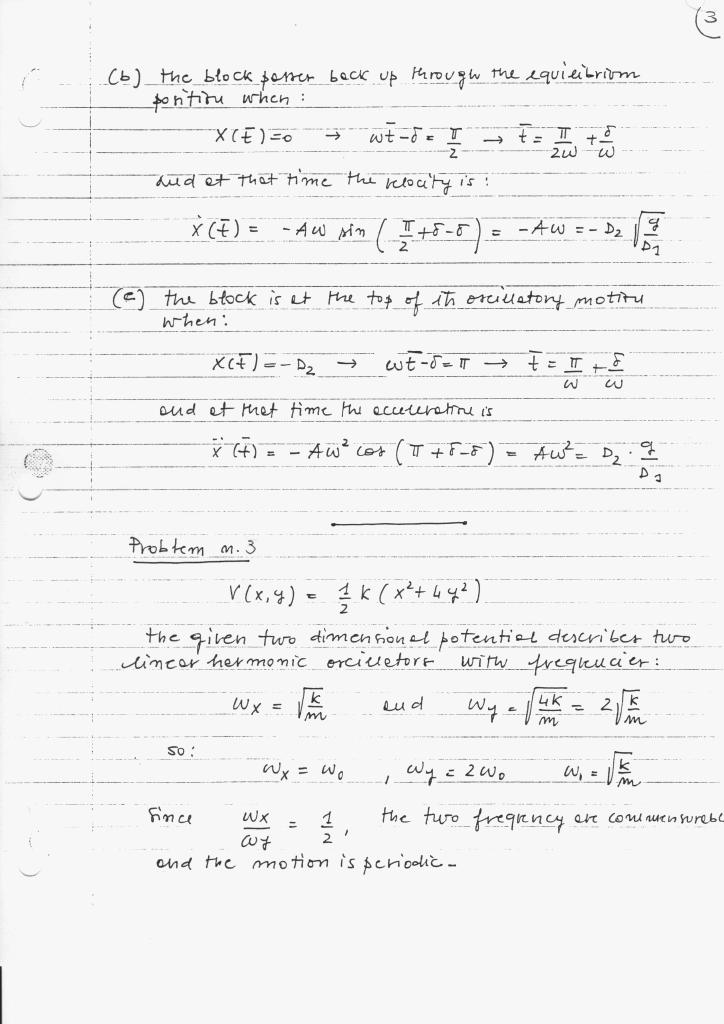 3
(b) the block passes back up through the equilibrium
position when :
X(t̄)=0 → ωt̄-δ = π/2 → t̄ = π/2ω + δ/ω
and at that time the velocity is :
ẋ(t̄) = -Aω sin (π/2 +δ-δ) = -Aω = - D₂ √(g/D₁)
(c) the block is at the top of its oscillatory motion
when :
X(t̄) = - D₂ → ωt̄-δ = π → t̄ = π/ω + δ/ω
and at that time the acceleration is
ẍ(t̄) = - Aω² cos (π +δ-δ) = Aω² = D₂ · g/D₁
Problem n. 3
V(x,y) = 1/2 k (x²+ 4y²)
the given two dimensional potential describes two
linear harmonic oscillators with frequencies :
ωx = √(k/m) and ωy = √(4k/m) = 2√(k/m)
so :
ωx = ω₀ , ωy = 2ω₀ ω₁ = √(k/m)
Since ωx/ωy = 1/2 , the two frequency are commensurabl
and the motion is periodic -